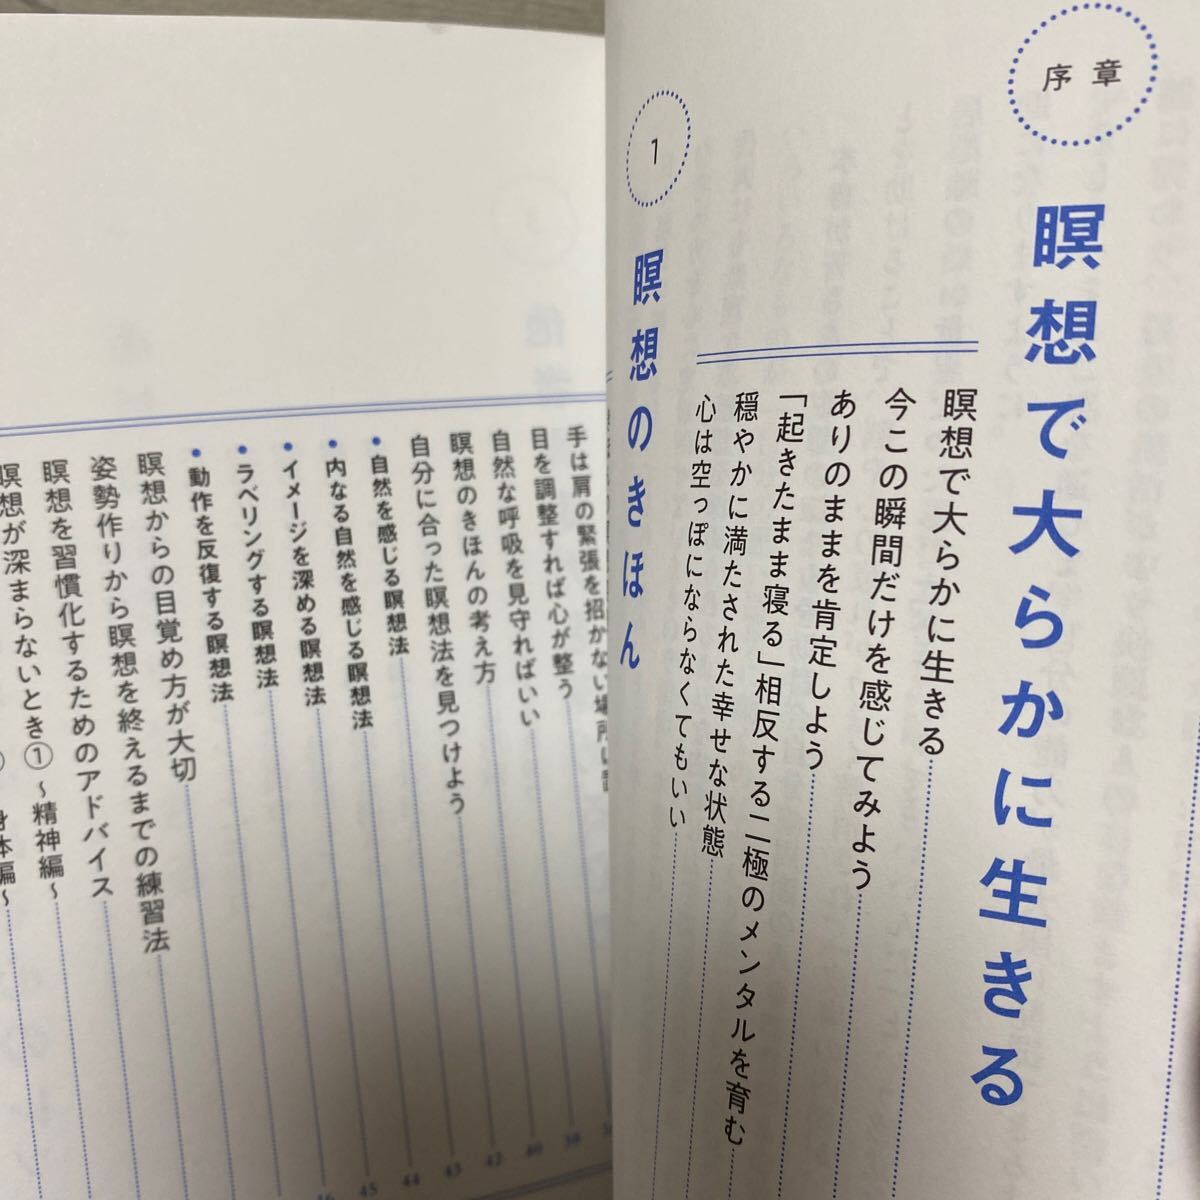 序章
瞑想で大らかに生きる
瞑想で大らかに生きる
今この瞬間だけを感じてみよう
ありのままを肯定しよう
「起きたまま寝る」相反する二極のメンタルを育む
穏やかに満たされた幸せな状態
心は空っぽにならなくてもいい
1
瞑想のきほん
手は肩の緊張を招かない場所に
目を調整すれば心が整う
自然な呼吸を見守ればいい
瞑想のきほんの考え方
自分に合った瞑想法を見つけよう
•自然を感じる瞑想法
•内なる自然を感じる瞑想法
•イメージを深める瞑想法
•ラベリングする瞑想法
•動作を反復する瞑想法
瞑想からの目覚め方が大切
姿勢作りから瞑想を終えるまでの練習法
瞑想を習慣化するためのアドバイス
瞑想が深まらないとき①〜精神編〜
身体編〜
39 40 42 43 44 45 46